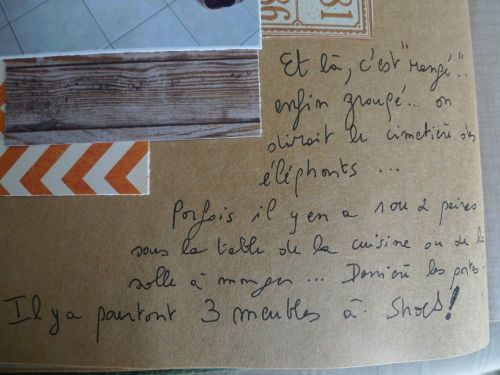 31
36
Et là, c'est "rangé"...
enfin groupé... on
dirait le cimetière des
éléphants...
Parfois il y en a 1 ou 2 paires
sous la table de la cuisine ou de la
salle à manger... Derrière les portes
Il y a pourtant 3 meubles à shoes!